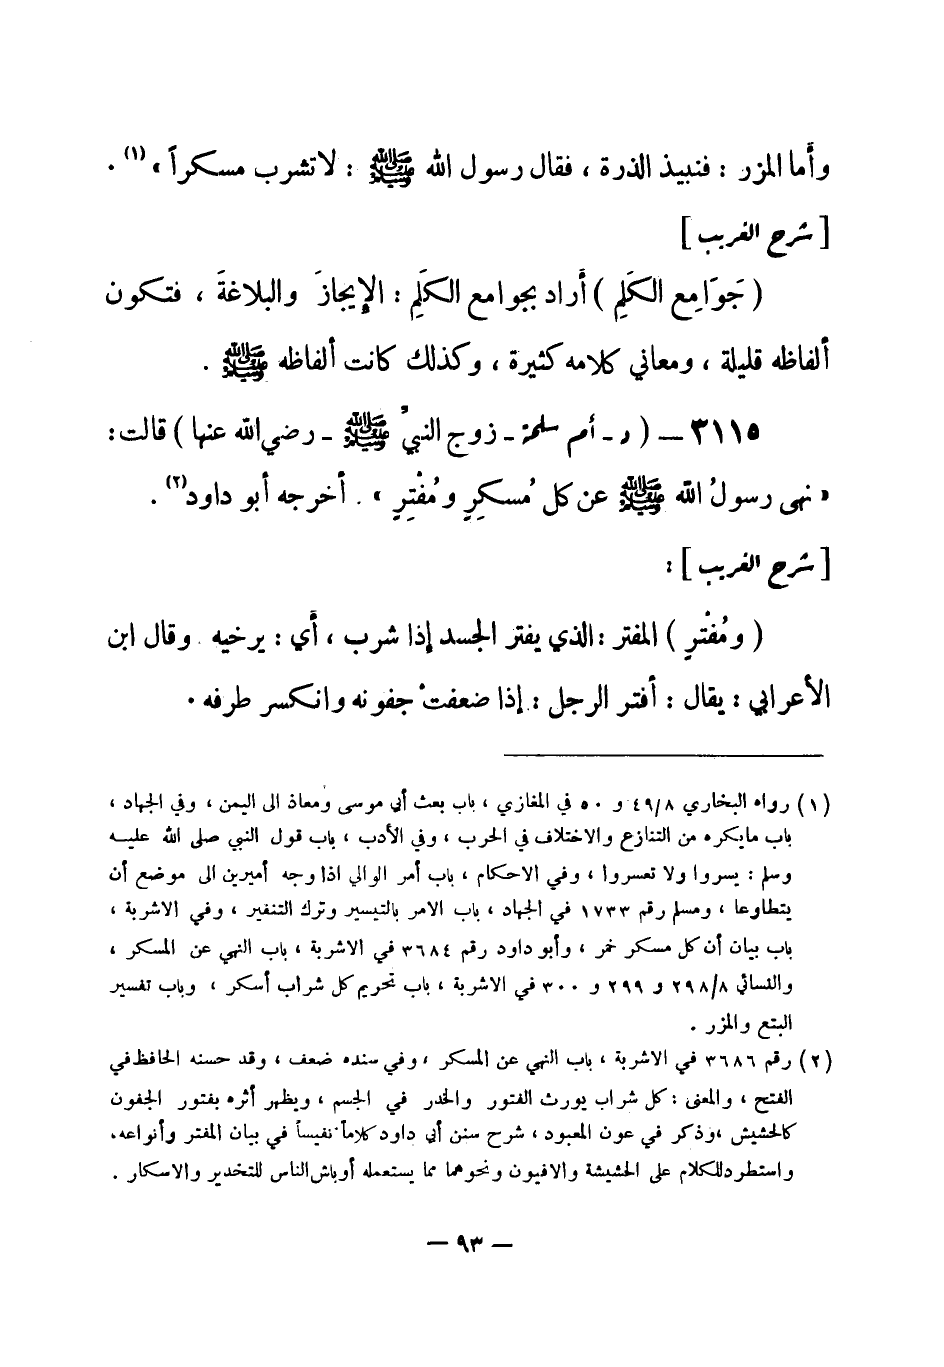 وأَما المزر : فنبيذ الذرة ، فقال رسول الله ﷺ : لا تشرب مسكراً »(١) .
[ شرح الغريب ]
( جَوَامِع الكَلِم ) أَراد بجوامع الكَلِم : الإِيجازَ والبلاغةَ ، فتكون
ألفاظه قليلة ، ومعاني كلامه كثيرة ، وكذلك كانت ألفاظه ﷺ .
٣١١٥ – ( د - أم سلمة - زوج النبيُّ ﷺ - رضي الله عنها ) قالت :
« نهى رسولُ الله ﷺ عن كل مُسكِرٍ ومُفْتِرٍ » . أخرجه أبو داود(٢) .
[ شرح الغريب ] :
( ومُفْترٍ ) المفتر : الذي يفتر الجسد إذا شرب ، أَي : يرخيه . وقال ابن
الأعرابي : يقال : أفتر الرجل : إذا ضعفتْ جفونه وانكسر طرفه .
(١) رواه البخاري ٤٩/٨ و ٥٠ في المغازي ، باب بعث أبي موسى ومعاذ الى اليمن ، وفي الجهاد ،
باب مايكره من التنازع والاختلاف في الحرب ، وفي الأدب ، باب قول النبي صلى الله عليه
وسلم : يسروا ولا تعسروا ، وفي الاحكام ، باب أمر الوالي اذا وجه أميرين الى موضع أن
يتطاوعا ، ومسلم رقم ١٧٣٣ في الجهاد ، باب الامر بالتيسير وترك التنفير ، وفي الاشربة ،
باب بيان أن كل مسكر خمر ، وأبو داود رقم ٣٦٨٤ في الاشربة ، باب النهي عن المسكر ،
والنسائي ٢٩٨/٨ و ٢٩٩ و ٣٠٠ في الاشربة ، باب تحريم كل شراب أسكر ، وباب تفسير
البتع والمزر .
(٢) رقم ٣٦٨٦ في الاشربة ، باب النهي عن المسكر ، وفي سنده ضعف ، وقد حسنه الحافظ في
الفتح ، والمعنى : كل شراب يورث الفتور والخدر في الجسم ، ويظهر أثره بفتور الجفون
كالحشيش ، وذكر في عون المعبود ، شرح سنن أبي داود كلاماً نفيساً في بيان المفتر وأنواعه ،
واستطرد للكلام على الحشيشة والافيون ونحوهما مما يستعمله أوباش الناس للتخدير والاسكار .
– ٩٣ –